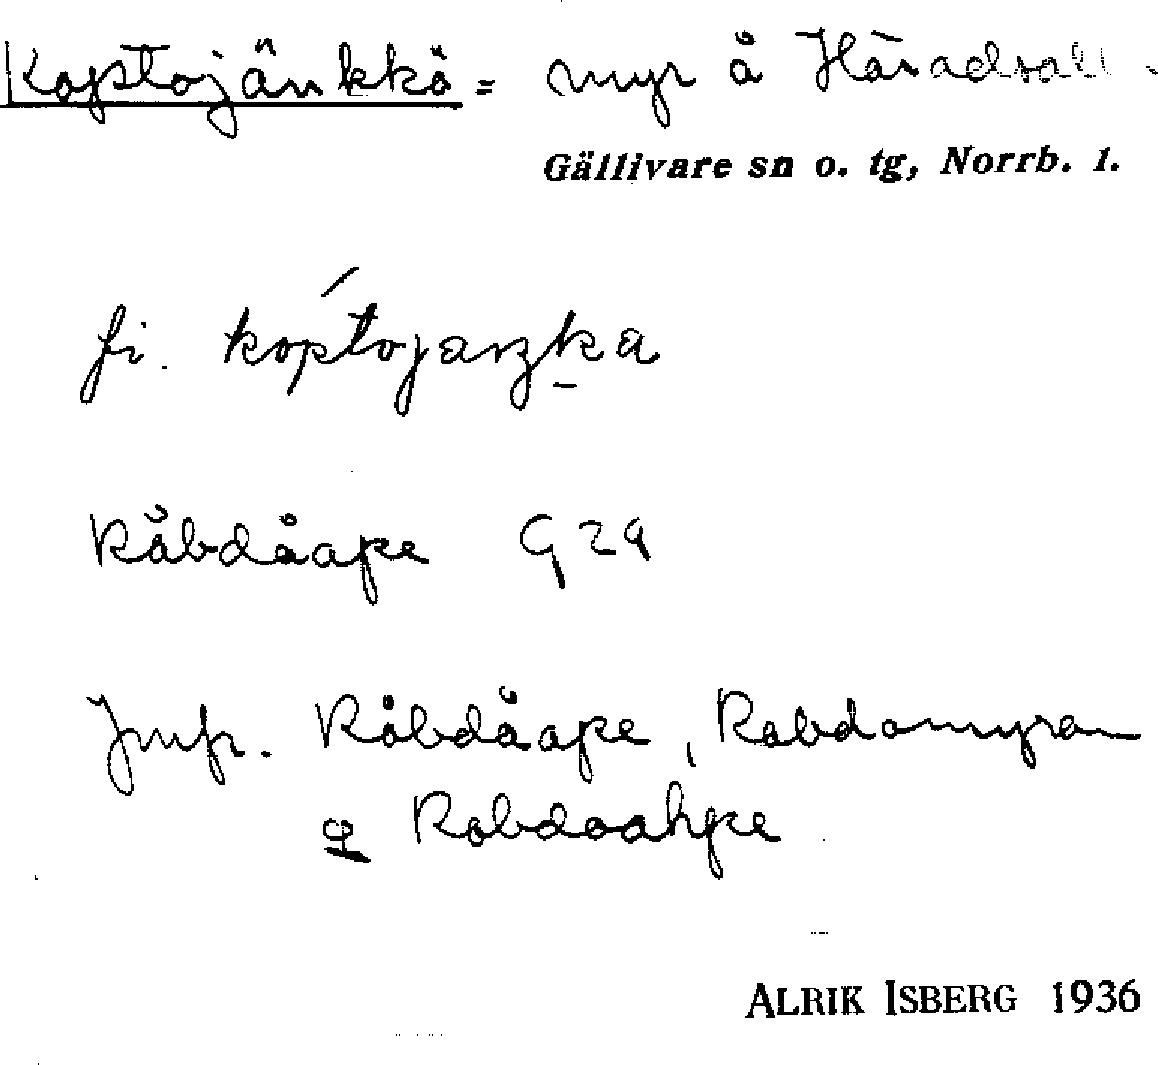 Koptojänkkä = myr å Häradsall.
Gällivare sn o. tg, Norrb. l.
fi. koptojaŋka
Råbdåape G 29
Jmfr. Råbdåape, Robdomyran
o Robdoahpe
ALRIK ISBERG 1936